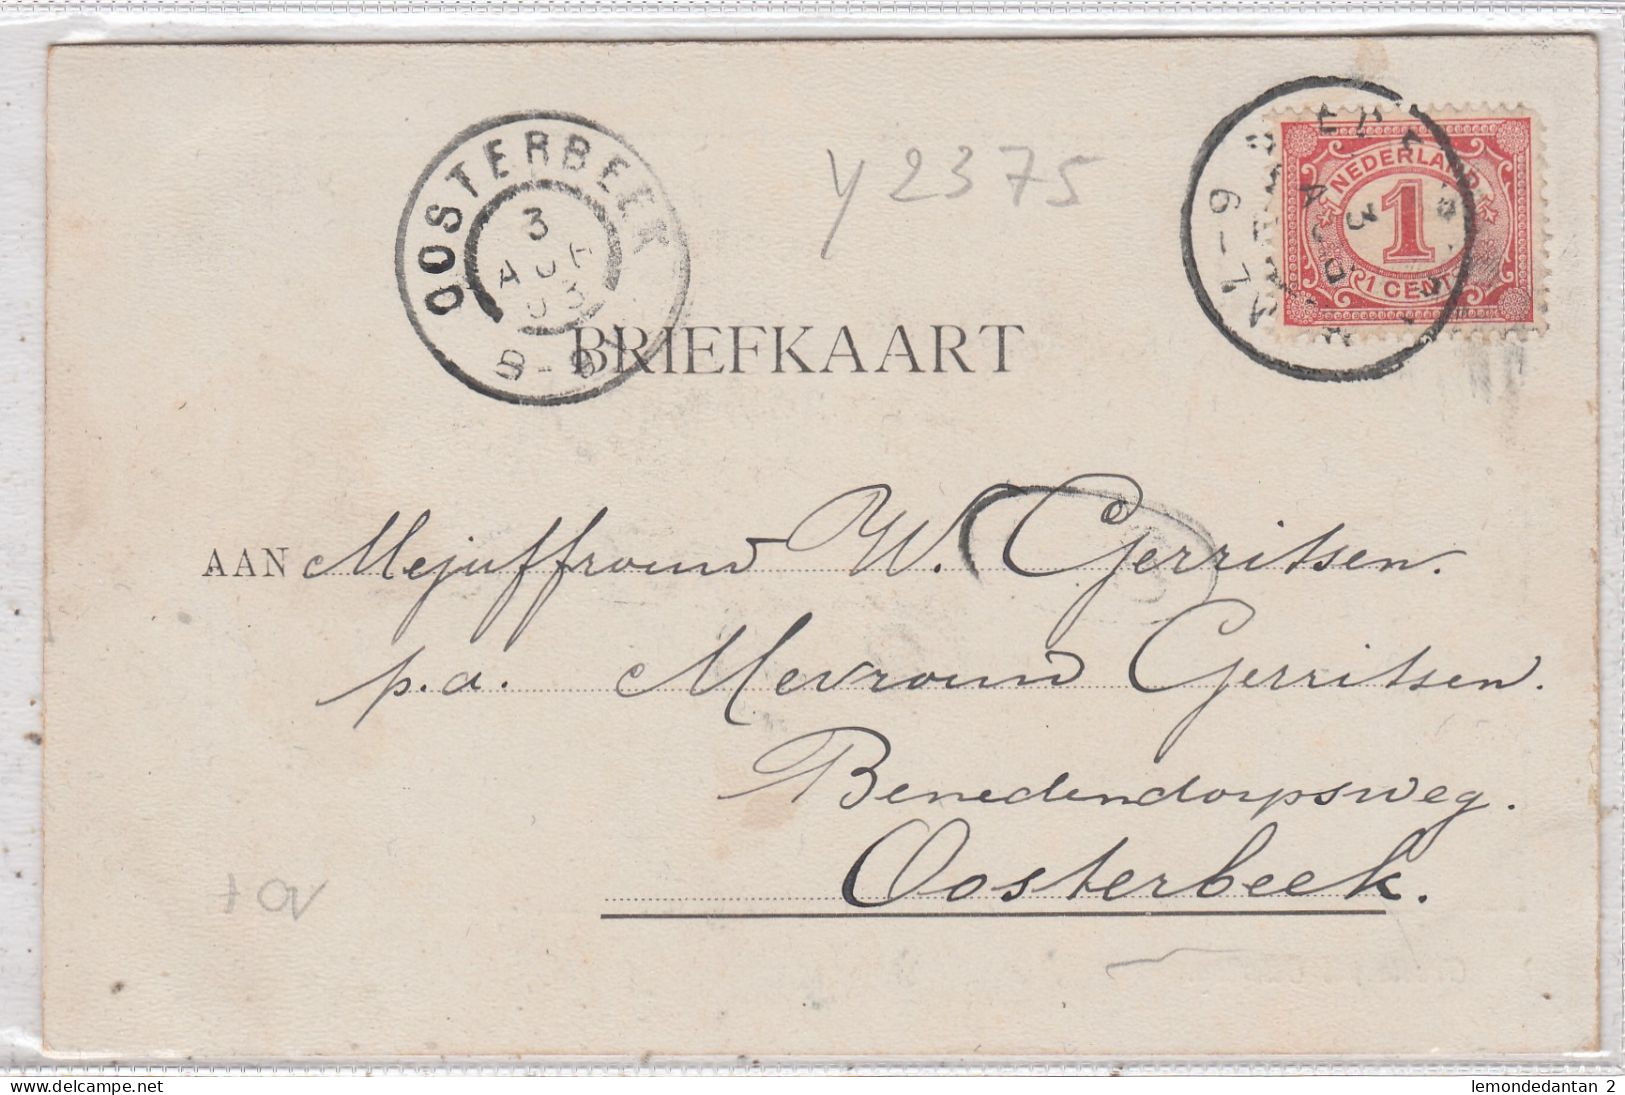 OOSTERBEEK
3
AUG
03
8-9
y 2375
NEDERLAND
1
1 CENT
BRIEFKAART
AAN Mejuffrouw W. Gerritsen.
p.a. Mevrouw Gerritsen.
Benedendorpsweg.
Oosterbeek.
delcampe.net
lemondedantan 2